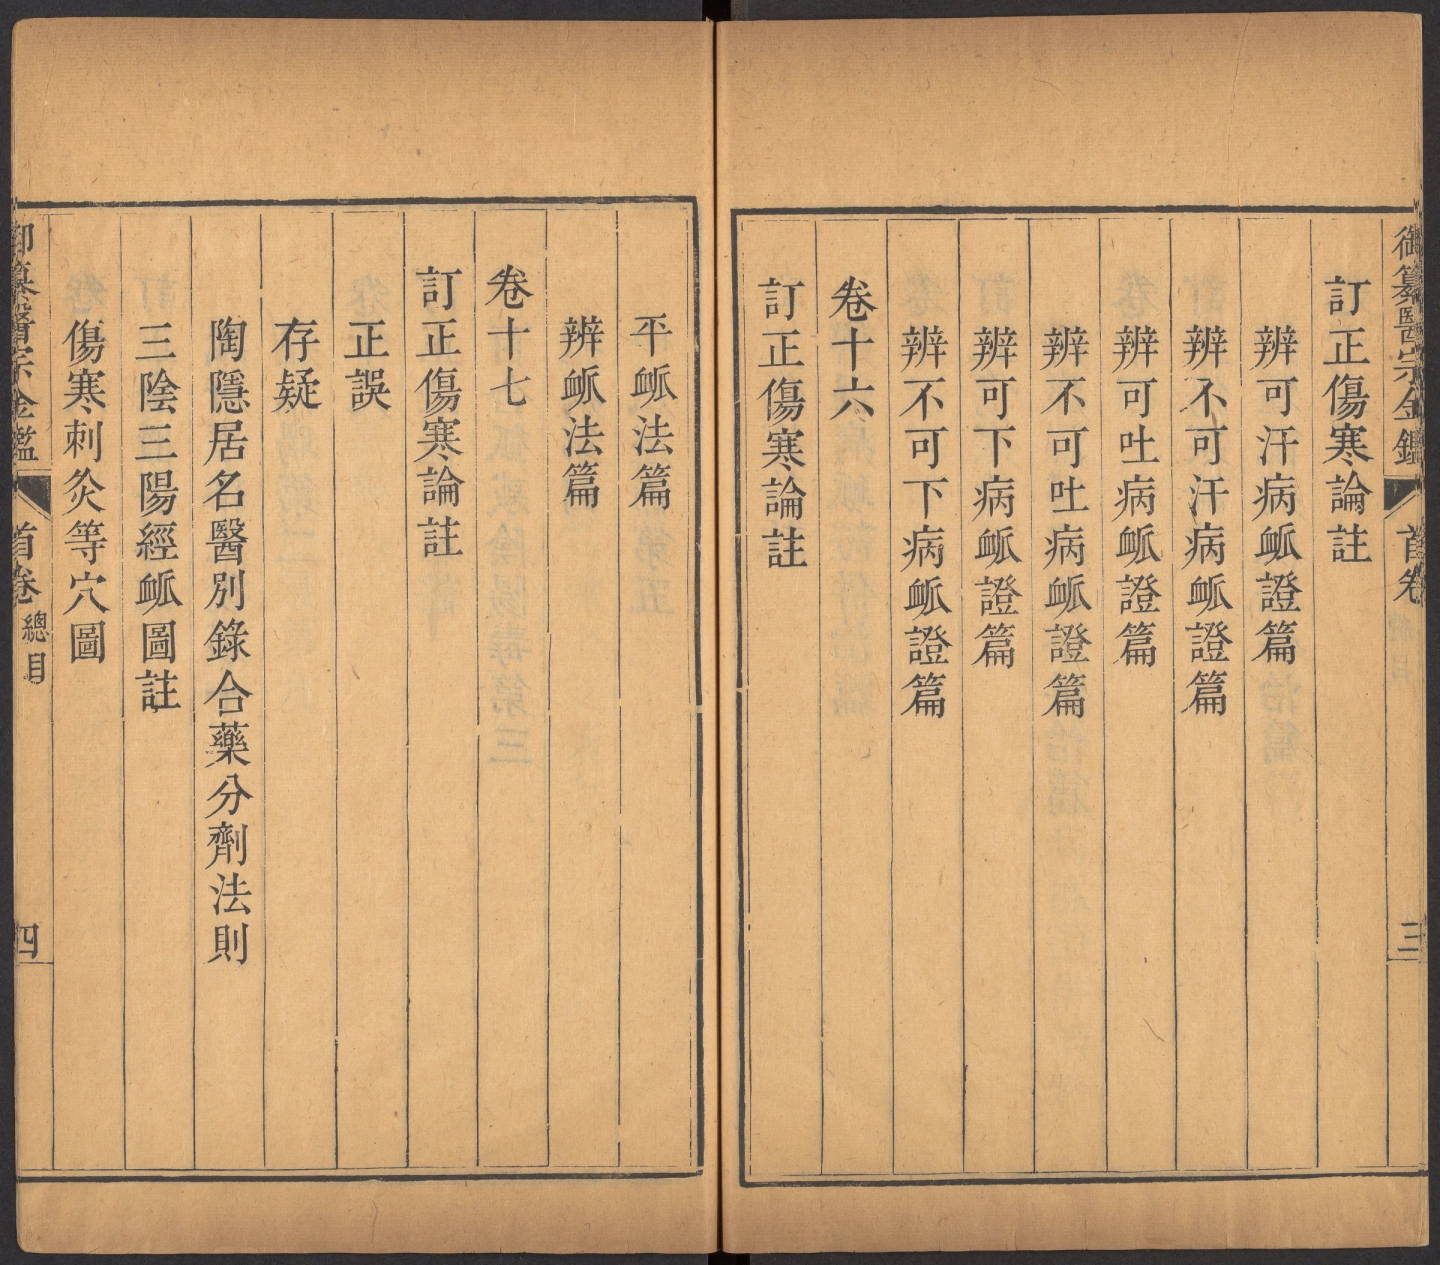 御纂醫宗金鑑 首卷 三
訂正傷寒論註
辨可汗病衇證篇
辨不可汗病衇證篇
辨可吐病衇證篇
辨不可吐病衇證篇
辨可下病衇證篇
辨不可下病衇證篇
卷十六
訂正傷寒論註
平衇法篇
辨衇法篇
卷十七
訂正傷寒論註
正誤
存疑
陶隱居名醫別錄合藥分劑法則
三陰三陽經衇圖註
傷寒刺灸等穴圖
御纂醫宗金鑑 首卷 總目 四